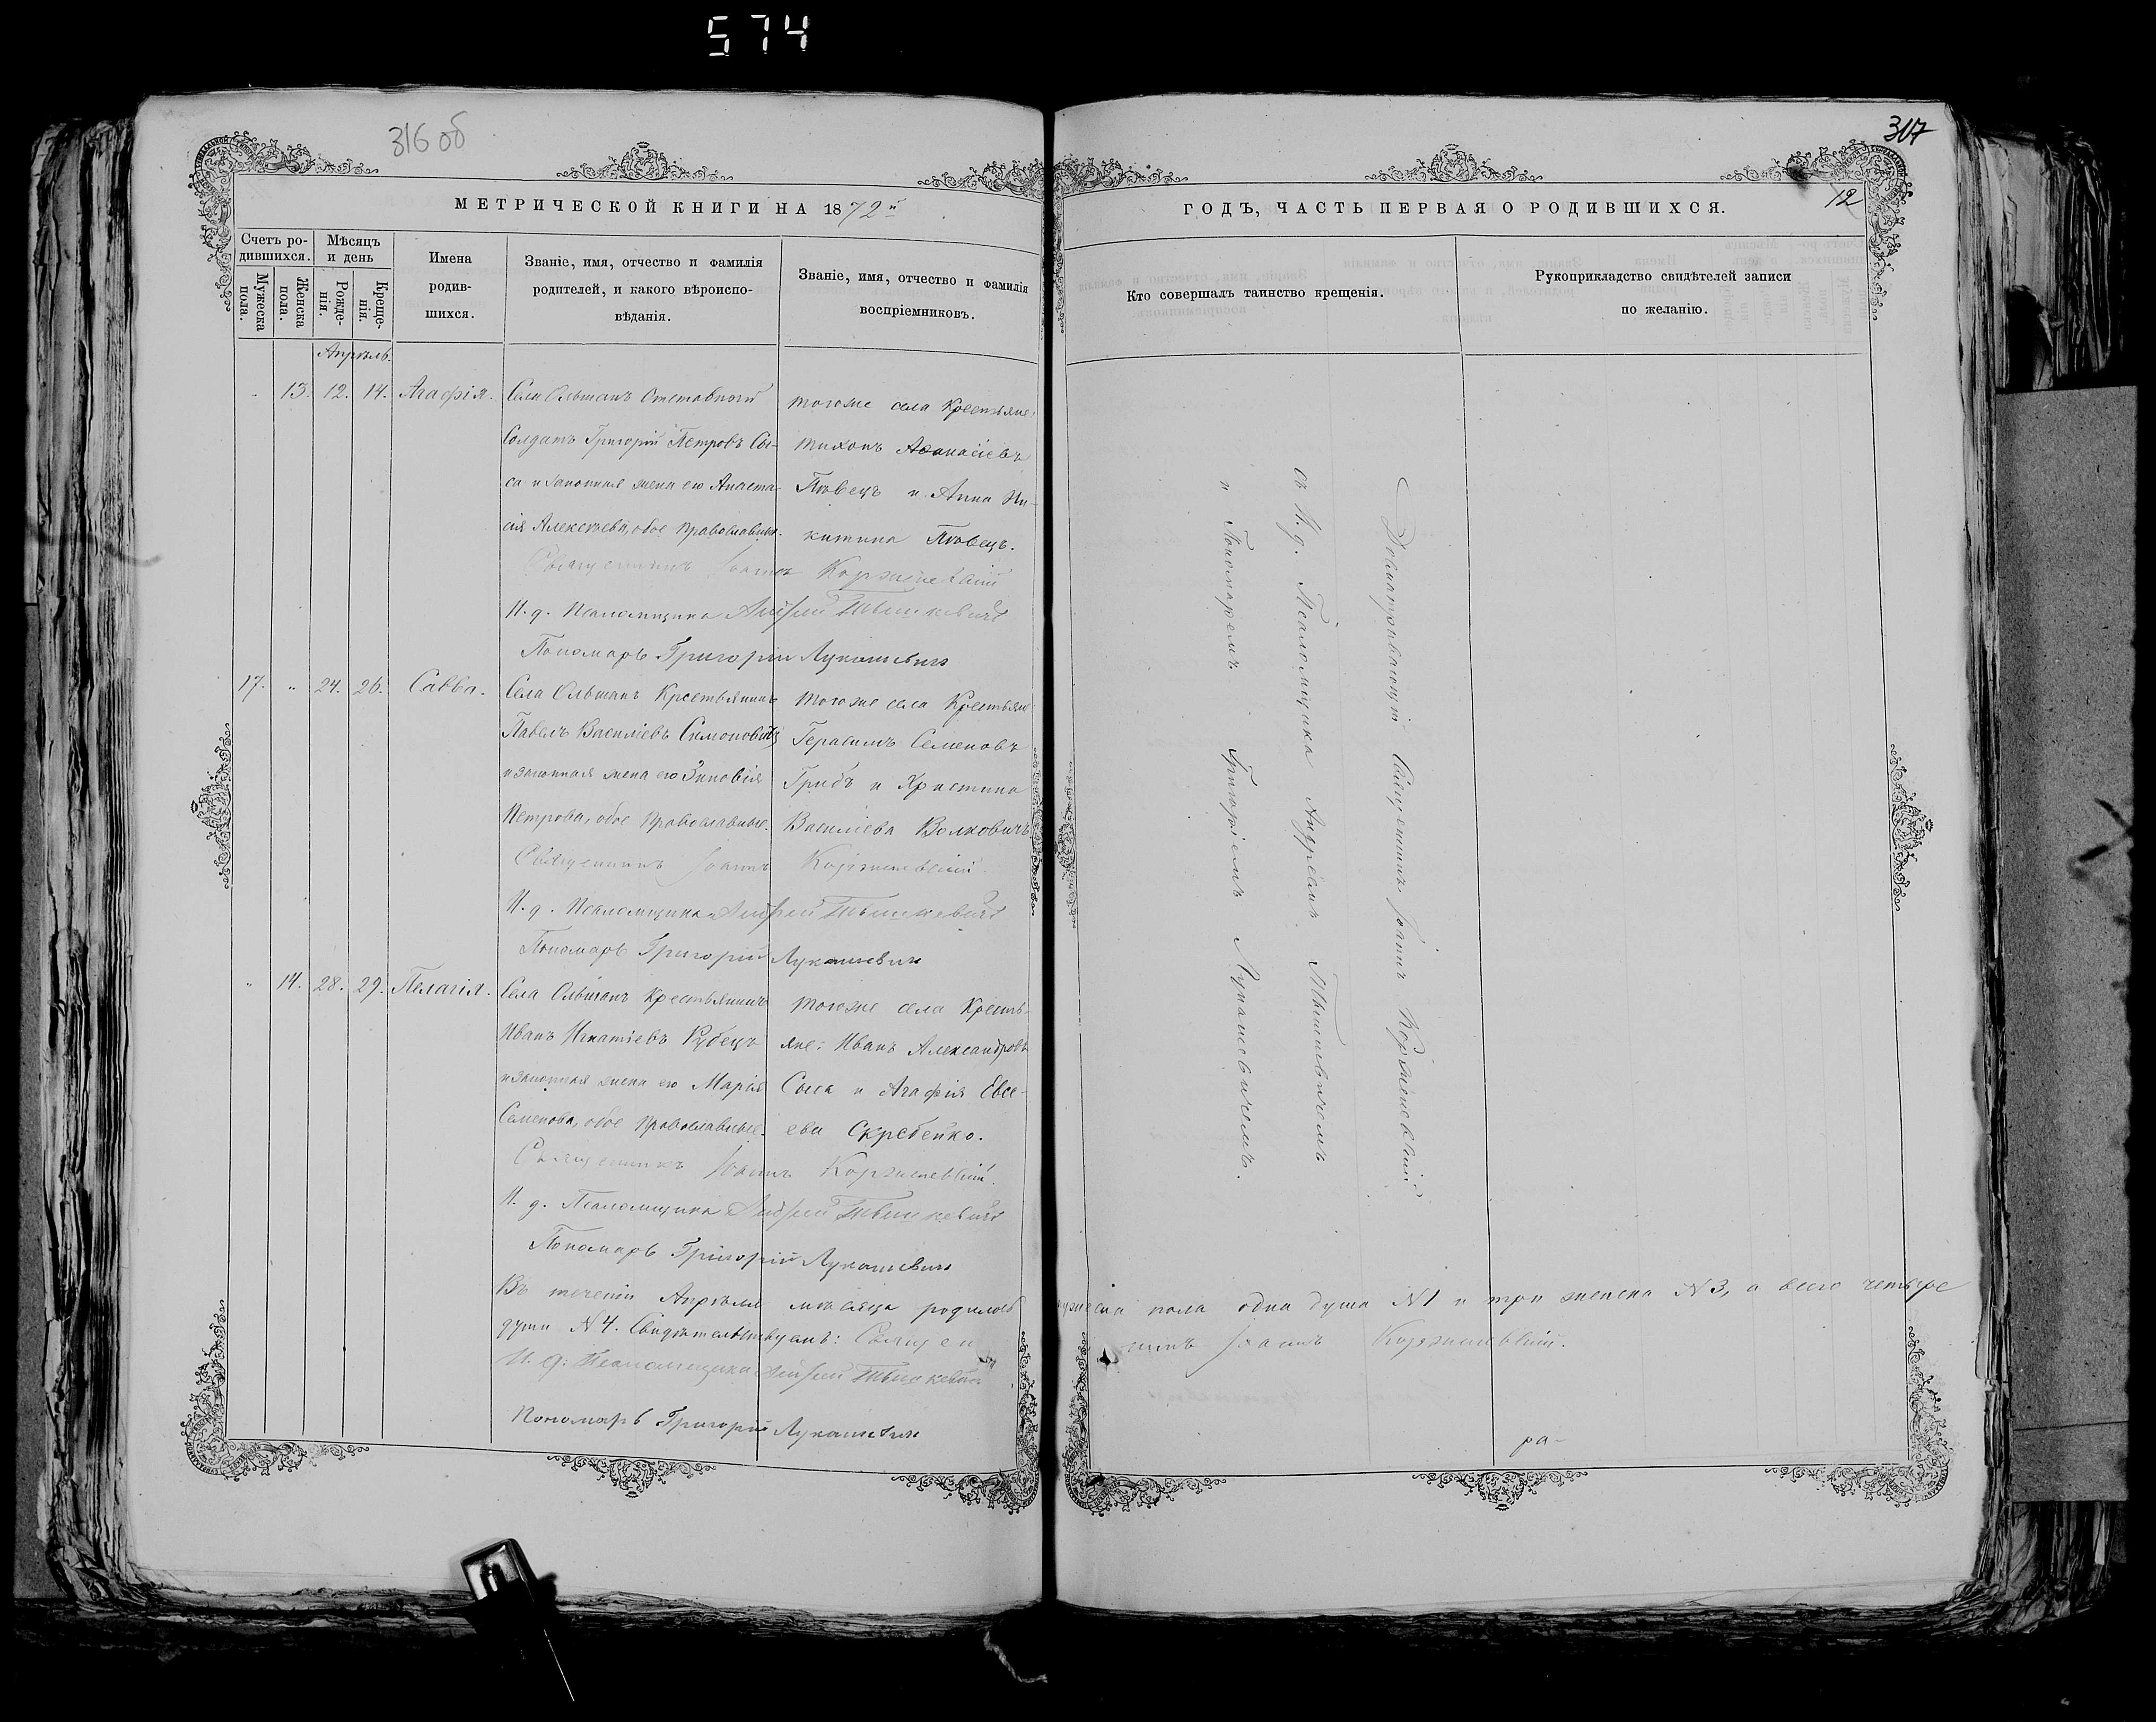 574
316 об
317
12
МЕТРИЧЕСКОЙ КНИГИ НА 1872й
ГОДЪ, ЧАСТЬ ПЕРВАЯ О РОДИВШИХСЯ.
Счетъ ро-
дившихся.
Мужеска
пола.
Женска
пола.
Мѣсяцъ
и день
Рожде-
нія.
Креще-
нія.
Имена
родив-
шихся.
Званіе, имя, отчество и фамилія
родителей, и какого вѣроиспо-
вѣданія.
Званіе, имя, отчество и фамилія
воспріемниковъ.
Кто совершалъ таинство крещенія.
Рукоприкладство свидѣтелей записи
по желанію.
Апрѣль.
" 13. 12. 14. Агафія.
Села Ольшанъ Отставной
Солдатъ Григорій Петровъ Сы-
са и законная жена его Анаста-
сія Алексѣева, обое православные.
тогоже села Крестьяне:
Тихонъ Аѳанасіевъ
Пѣвецъ и Анна Ни-
китина Пѣвецъ.
Священникъ Іоаннъ Корженевскій
И. д. Псаломщика Андрей Тышкевичъ
Пономарь Григорій Лукашевичъ
17. " 24. 26. Савва.
Села Ольшанъ Крестьянинъ
Павелъ Василіевъ Симоновичъ
и законная жена его Зиновія
Петрова, обое православные.
тогоже села Крестьяне
Герасимъ Семеновъ
Грибъ и Христина
Василіева Волковичъ
Священникъ Іоаннъ Корженевскій
И. д. Псаломщика Андрей Тышкевичъ
Пономарь Григорій Лукашевичъ
" 14. 28. 29. Пелагія.
Села Ольшанъ Крестьянинъ
Иванъ Игнатіевъ Рубецъ
и законная жена его Марія
Семенова, обое православные.
тогоже села Кресть-
яне: Иванъ Александровъ
Сыса и Агафія Евсе-
ева Скребейко.
Священникъ Іоаннъ Корженевскій.
И. д. Псаломщика Андрей Тышкевичъ
Пономарь Григорій Лукашевичъ
Священникъ Іоаннъ Корженевскій
съ И. д. Псаломщика Андреемъ Тышкевичемъ
и Пономаремъ Григоріемъ Лукашевичемъ.
Въ теченіи Апрѣля мѣсяца родилось мужеска пола одна душа №1 и три женска №3, а всего четыре
души №4. Свидѣтельствуемъ: Священникъ Іоаннъ Корженевскій.
И. д. Псаломщика Андрей Тышкевичъ
Пономарь Григорій Лукашевичъ
ра-